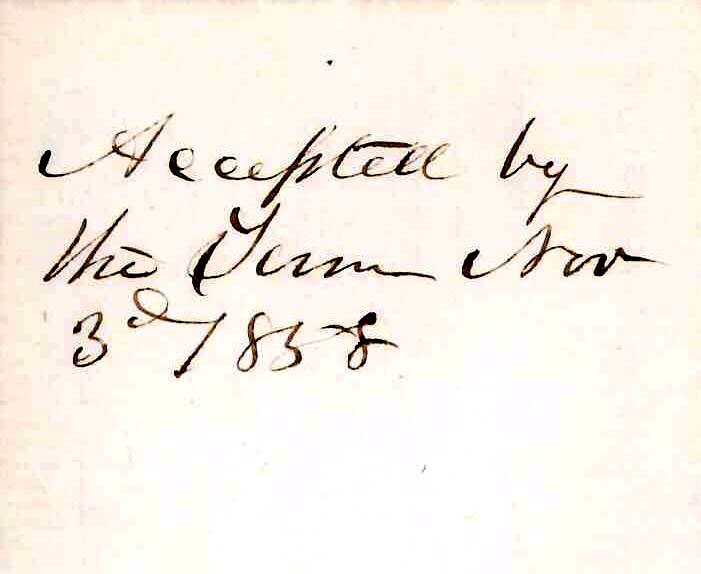 Accepted by
the Town Nov
3d 1858